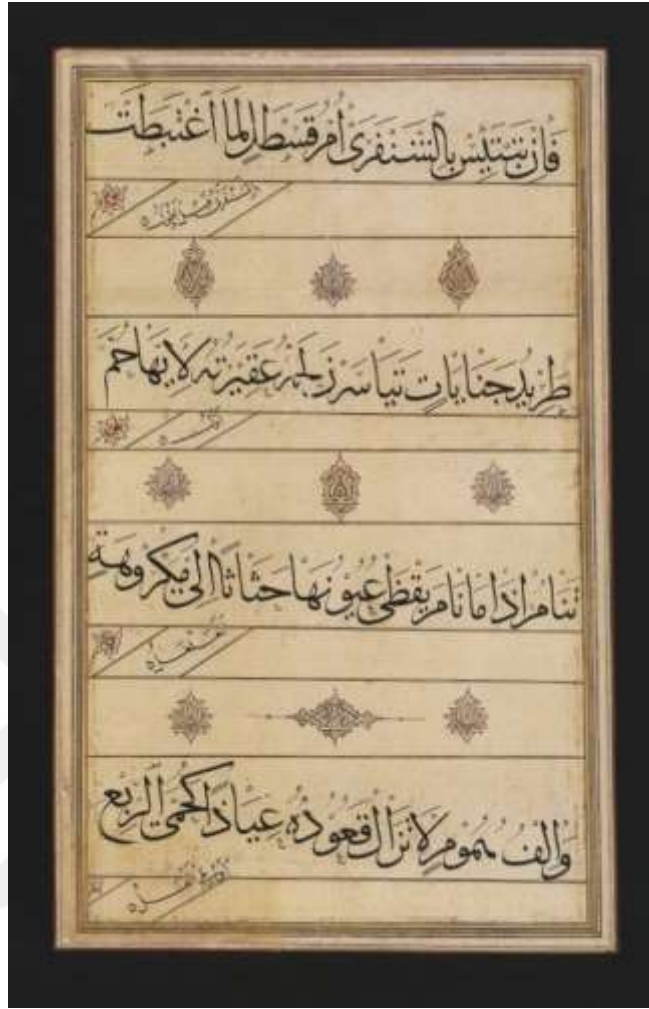 فَإِن تَبْتَئِسْ بِالشَنْفَرَى أُمُّ قَسْطَلٍ لَمَا اغْتَبَطَتْ
بالشنفرى قبل اطول
طَرِيدُ جَنَايَاتٍ تَيَاسَرْنَ لَحْمَهُ عَقِيرَتُهُ لِأَيِّهَا حُمَّ
اول
تَنَامُ إِذَا مَا نَامَ يَقْظَى عُيُونُهَا حِثَاثًا إِلَى مَكْرُوهِهِ
وَإِلْفُ هُمُومٍ لَا تَزَالُ تَعُودُهُ عِيَادًا كَحُمَّى الرِّبْعِ